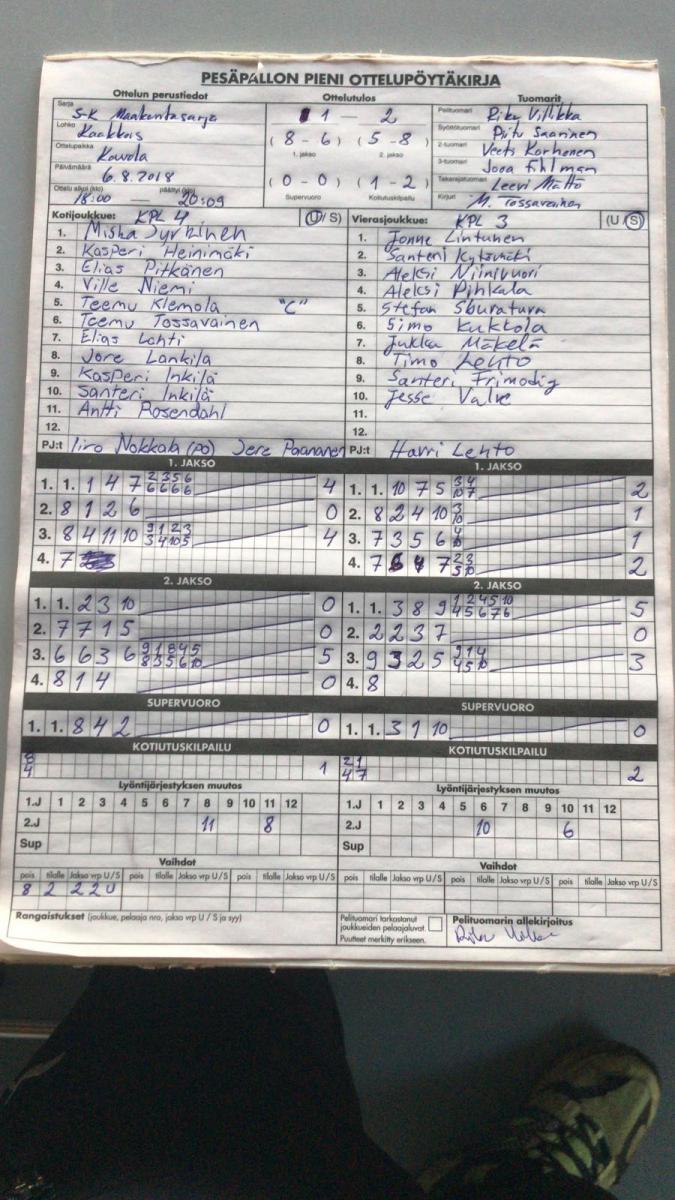 PESÄPALLON PIENI OTTELUPÖYTÄKIRJA
Ottelun perustiedot
Ottelutulos
Tuomarit
Sarja S-K Maakuntasarja
Lohko Kaakkois
Ottelupaikka Kouvola
Päivämäärä 6.8.2018
Ottelu alkoi (klo) päättyi (klo)
18:00 — 20:09
1 — 2
( 8 - 6 ) ( 5 - 8 )
1. jakso 2. jakso
( 0 - 0 ) ( 1 - 2 )
Supervuoro Kotiutuskilpailu
Pelituomari Riku Vilkka
Syöttötuomari Piitu Saarinen
2-tuomari Veets Korhonen
3-tuomari Joona Fihlman
Takarajatuomari Leevi Mättö
Kirjuri M. Tossavainen
Kotijoukkue: KPL 4 (U/S)
1. Miska Jyrkinen
2. Kasperi Heinimäki
3. Elias Pitkänen
4. Ville Niemi
5. Teemu Klemola "C"
6. Teemu Tossavainen
7. Elias Lahti
8. Jore Lankila
9. Kasperi Inkilä
10. Santeri Inkilä
11. Antti Rosendahl
12.
PJ:t Iiro Nokkala (po) Jere Paananen
Vierasjoukkue: KPL 3 (U/S)
1. Jonne Lintunen
2. Santeri Kytömäki
3. Aleksi Niinivuori
4. Aleksi Pihkala
5. Stefan Sburatura
6. Simo Kukkola
7. Jukka Mäkelä
8. Timo Lehto
9. Santeri Frimodig
10. Jesse Valve
11.
12.
PJ:t Harri Lehto
1. JAKSO
1. 1. 1 4 7 2 3 5 6 4
6 6 6 6
2. 8 1 2 6 0
3. 8 4 11 10 9 1 2 3 4
3 4 10 5
4. 7
1. JAKSO
1. 1. 10 7 5 3 4 2
10 7
2. 8 2 4 10 3 1
10
3. 7 3 5 6 4 1
10
4. 7 6 4 7 2 3 2
5 10
2. JAKSO
1. 1. 2 3 10 0
2. 7 7 1 5 0
3. 6 6 3 6 9 1 8 4 5 5
8 3 5 6 10
4. 8 1 4 0
2. JAKSO
1. 1. 3 8 9 1 2 4 5 10 5
4 5 6 7 6
2. 2 2 3 7 0
3. 9 3 2 5 9 1 4 3
4 5 10
4. 8
SUPERVUORO
1. 1. 8 4 2 0
SUPERVUORO
1. 1. 3 1 10 0
KOTIUTUSKILPAILU
8 1
4
KOTIUTUSKILPAILU
2 1 2
4 7
Lyöntijärjestyksen muutos
1.J 1 2 3 4 5 6 7 8 9 10 11 12
2.J 11 8
Sup
Lyöntijärjestyksen muutos
1.J 1 2 3 4 5 6 7 8 9 10 11 12
2.J 10 6
Sup
Vaihdot
pois tilalle Jakso vrp U/S pois tilalle Jakso vrp U/S pois tilalle Jakso vrp U/S
8 2 2 2 U
Vaihdot
pois tilalle Jakso vrp U/S pois tilalle Jakso vrp U/S pois tilalle Jakso vrp U/S
Rangaistukset (joukkue, pelaaja nro, jakso vrp U / S ja syy)
Pelituomari tarkastanut
joukkueiden pelaajaluvat.
Puutteet merkitty erikseen.
Pelituomarin allekirjoitus